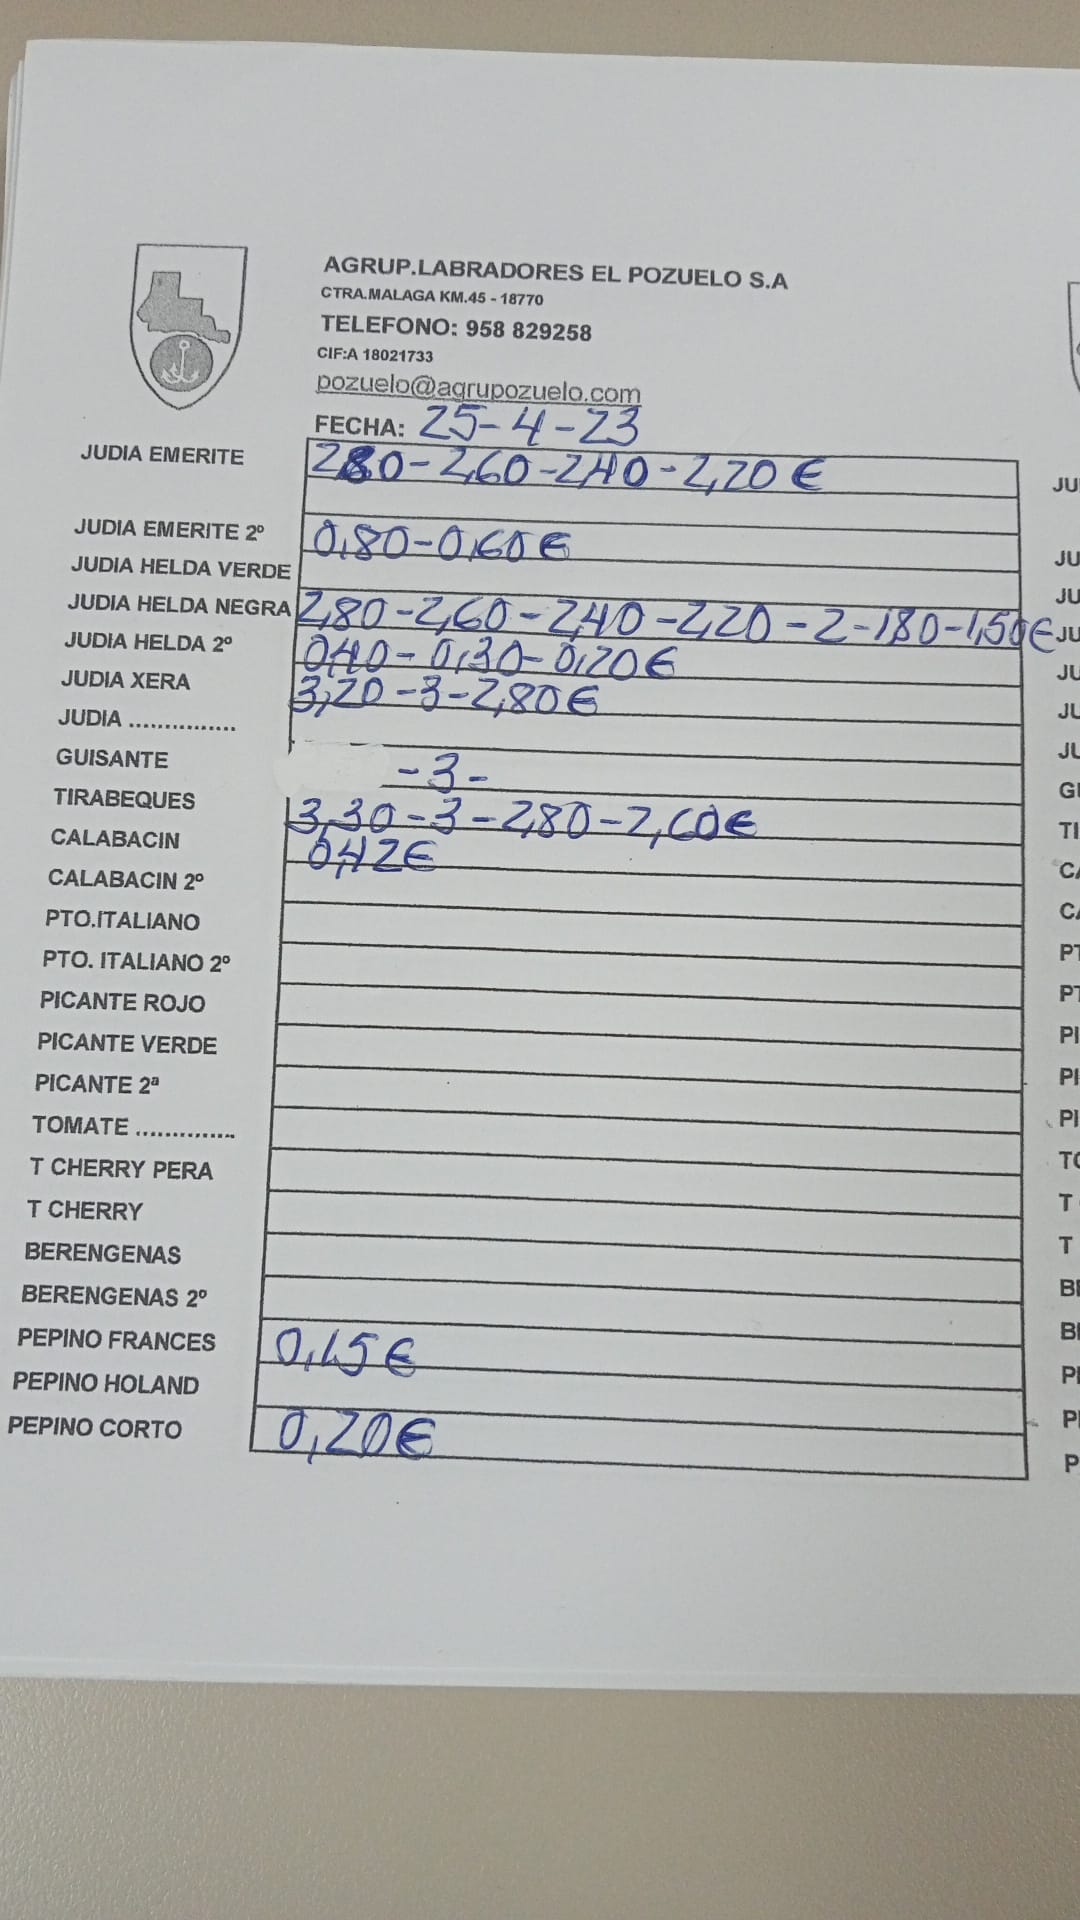 AGRUP.LABRADORES EL POZUELO S.A
CTRA.MALAGA KM.45 - 18770
TELEFONO: 958 829258
CIF:A 18021733
pozuelo@agrupozuelo.com
FECHA: 25-4-23
JUDIA EMERITE 2,80-2,60-2,40-2,20 €
JUDIA EMERITE 2º 0,80-0,60€
JUDIA HELDA VERDE
JUDIA HELDA NEGRA 2,80-2,60-2,40-2,20-2-1,80-1,50€
JUDIA HELDA 2º 0,40-0,30-0,20€
JUDIA XERA 3,20-3-2,80€
JUDIA ...............
GUISANTE -3-
TIRABEQUES 3,30-3-2,80-2,60€
CALABACIN 0,42€
CALABACIN 2º
PTO.ITALIANO
PTO. ITALIANO 2º
PICANTE ROJO
PICANTE VERDE
PICANTE 2ª
TOMATE ..............
T CHERRY PERA
T CHERRY
BERENGENAS
BERENGENAS 2º
PEPINO FRANCES 0,15€
PEPINO HOLAND
PEPINO CORTO 0,20€